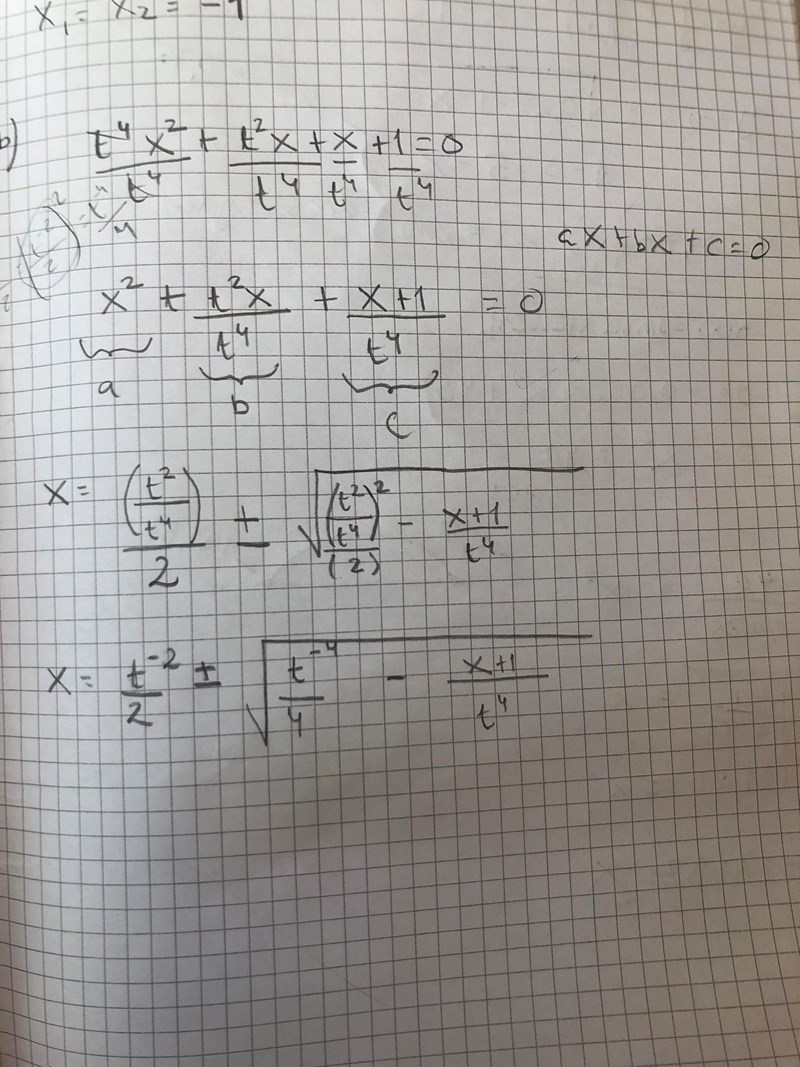 x₁ = x₂ = -1
b) t⁴x²/t⁴ + t²x/t⁴ + x/t⁴ + 1/t⁴ = 0
ax+bx+c=0
x² + t²x/t⁴ + x+1/t⁴ = 0
a b c
x = (t²/t⁴)/2 ± √((t²/t⁴)²/(2) - x+1/t⁴)
x = t⁻²/2 ± √(t⁻⁴/4 - x+1/t⁴)